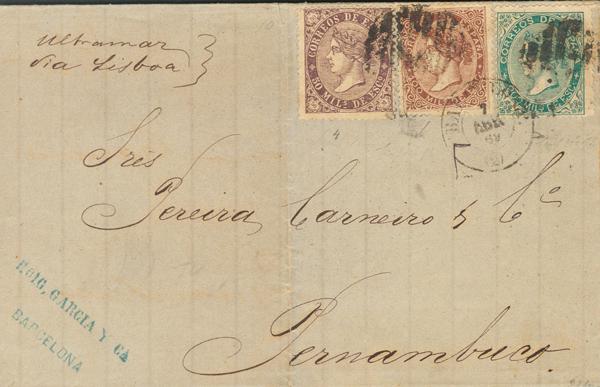 Ultramar
via Lisboa
CORREOS DE ESPAÑA
50 MIL.S DE ESC.O
CORREOS DE
MIL.S DE ESC.O
Sres
Pereira Carneiro & Cª
Pernambuco
ROIG, GARCIA Y CA
BARCELONA